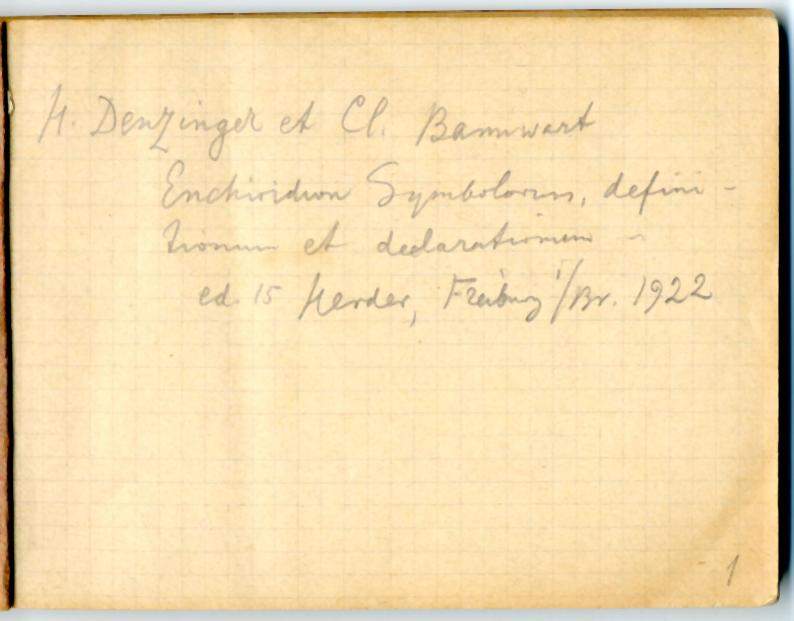 H. Denzinger et Cl. Bannwart
Enchiridion Symbolorum, defini-
tionum et declarationum –
ed. 15 Herder, Freiburg i/Br. 1922
1